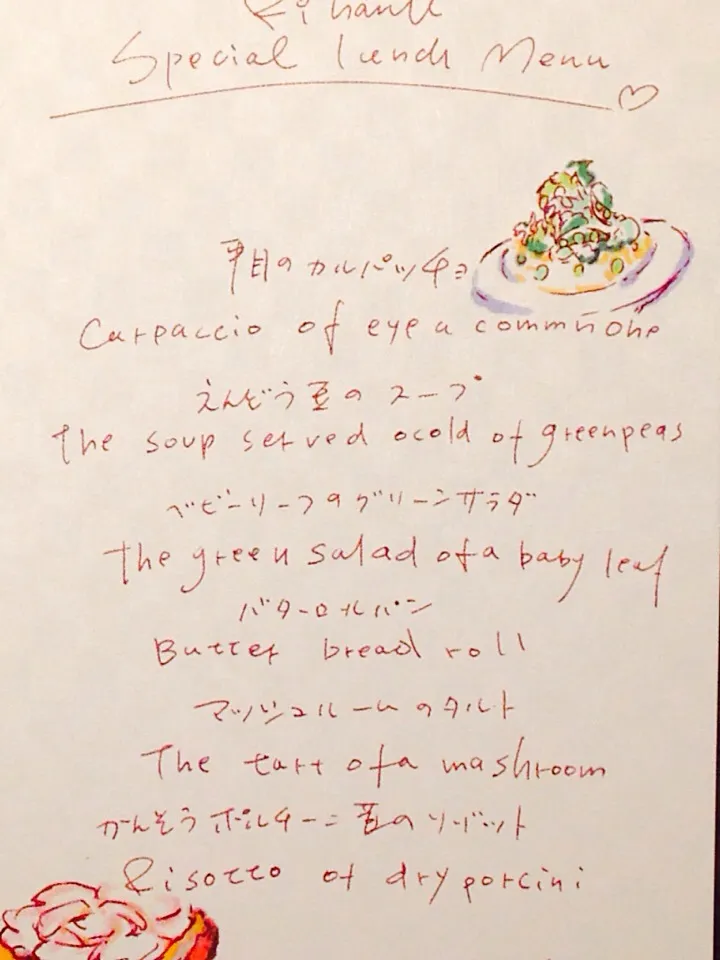 Special lunch Menu
平目のカルパッチョ
Carpaccio of eye a common one
えんどう豆のスープ
The soup served ocold of greenpeas
ベビーリーフのグリーンサラダ
The green salad of a baby leaf
バターロールパン
Butter bread roll
マッシュルームのタルト
The tart of a mashroom
かんそうポルチーニ茸のリゾット
Risotto of dry porcini